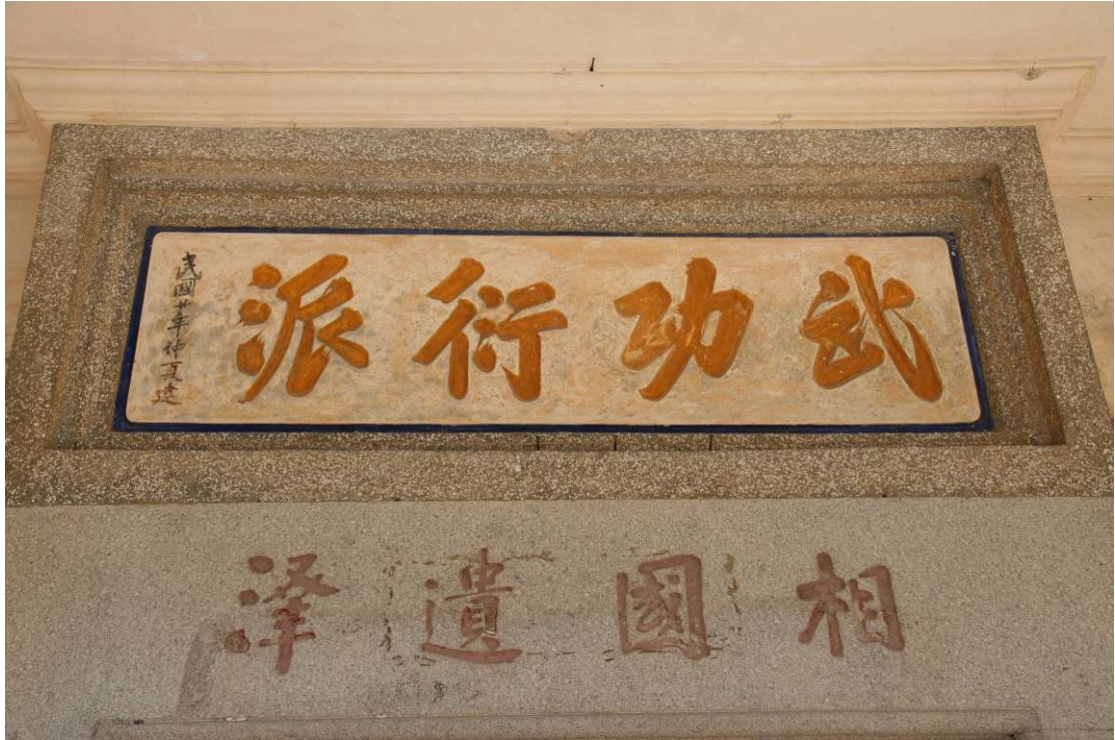 武功衍派
民國廿年仲夏建
相國遺澤